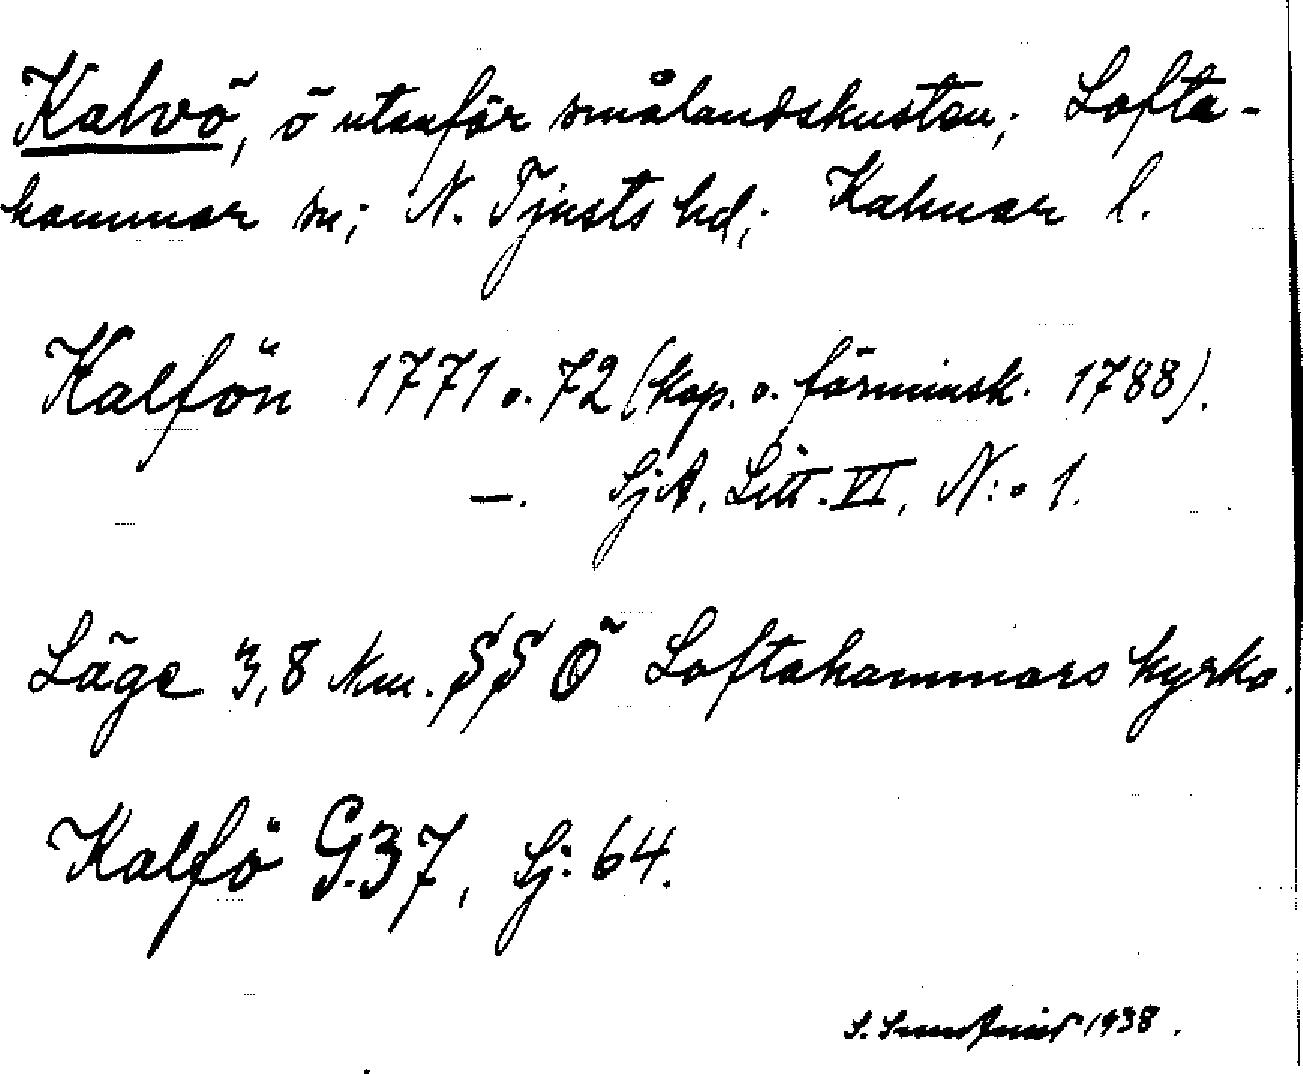 Kalvö, ö utanför smålandskusten; Lofta-
hammar sn; N. Tjusts hd; Kalmar l.
Kalfön 1771 o. 72 (kop. o. förminsk. 1788).
—. SjA, Litt. VI, N:o 1.
Läge 3,8 km. SSÖ Loftahammars kyrka.
Kalfö G.37, Sj: 64.
S. 1938.